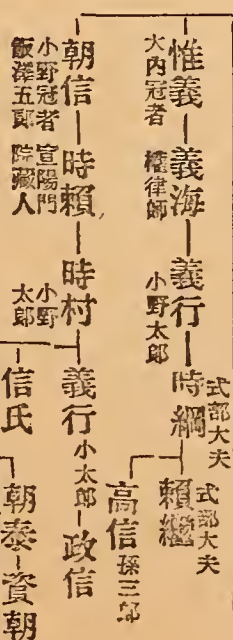 惟義
大内冠者
義海
權律師
義行
小野太郎
時綱
式部大夫
賴繼
式部大夫
高信
孫三郎
朝信
小野冠者
飯澤五郎
時賴
宣陽門
院藏人
時村
小野
太郎
義行
小太郎
政信
信氏
朝泰
資朝